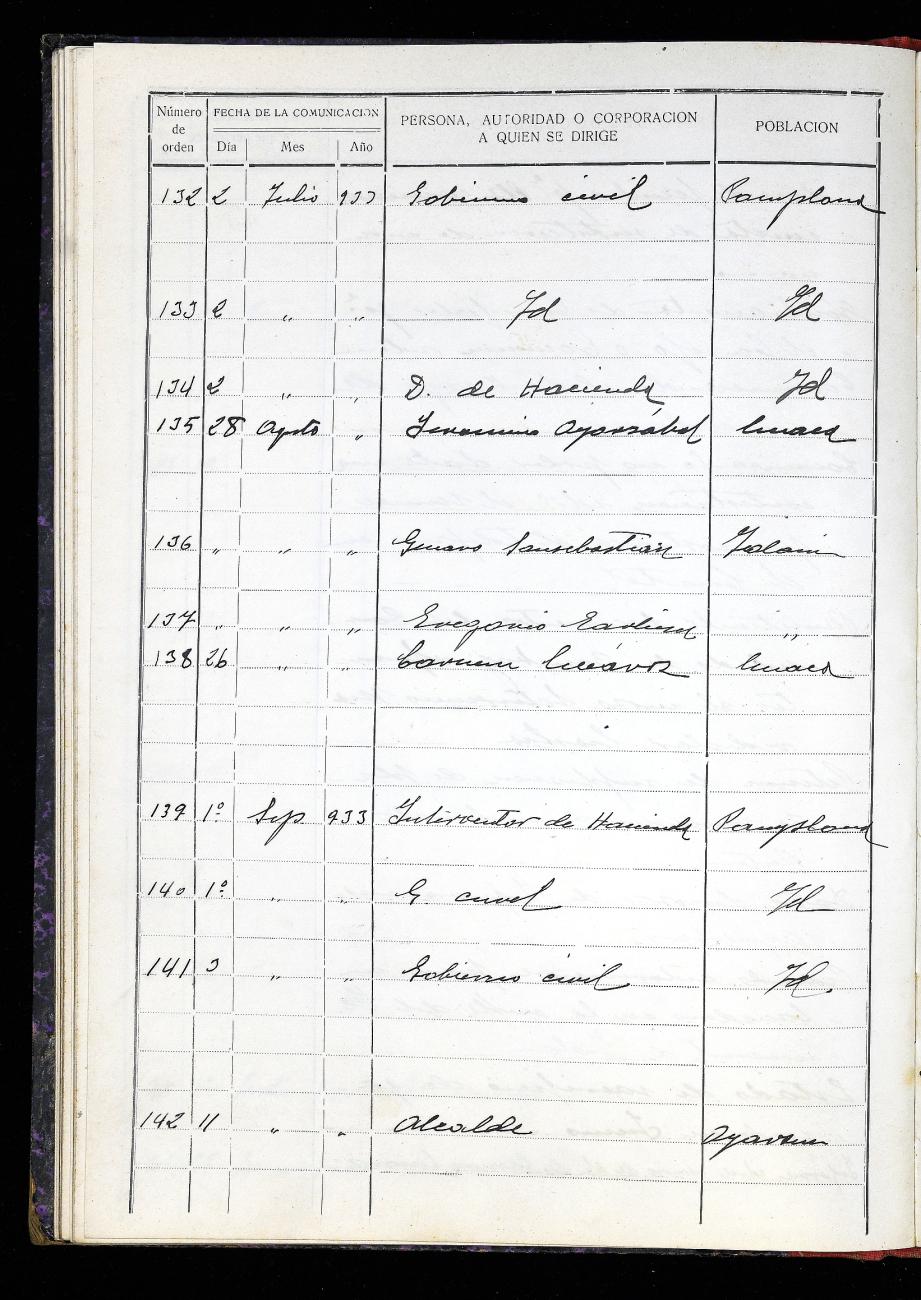 Número de orden FECHA DE LA COMUNICACION PERSONA, AUTORIDAD O CORPORACION A QUIEN SE DIRIGE POBLACION
Día Mes Año
132 2 Julio 933 Gobierno civil Pamplona
133 2 " " Id Id
134 2 " " D. de Hacienda Id
135 28 Agosto " Jeronimo Oyarzabal
136 " " " Genaro Sansebastián
137 " " " Gregorio "
138 26 " " Carmen
139 1º Sep. 933 Interventor de Hacienda Pamplona
140 1º " " G. civil Id
141 3 " " Gobierno civil Id.
142 11 " " Alcalde Oyarzun